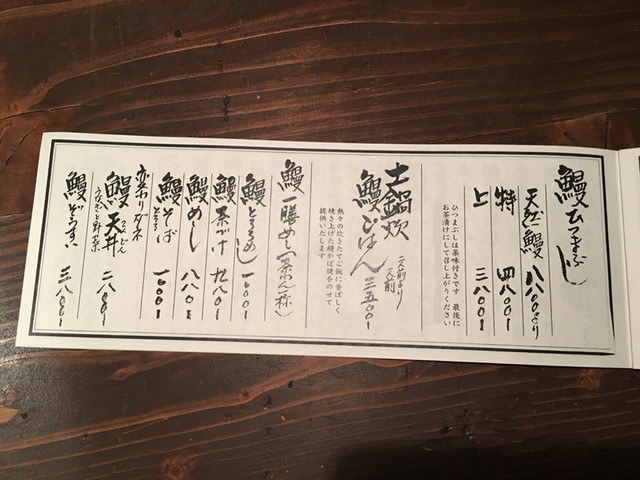 鰻ひつまぶし
天然鰻 八八〇〇より
特 四八〇〇
上 三八〇〇
ひつまぶしは薬味付きです 最後に
お茶漬けにして召し上がりください
土鍋炊
鰻ごはん 三五〇〇
二人前より
一人前
熱々の炊きたてご飯に香ばしく
焼き上げた鰻かば焼をのせて
提供いたします
鰻一膳めし(茶わん一杯)
鰻とろろめし 一〇〇〇
鰻茶づけ 九八〇
鰻めし 八八〇
鰻そば 一〇〇〇
とろろ
変わりダネ
鰻天丼 二八〇〇
うなぎと野菜
鰻ぞうすい 三八〇〇